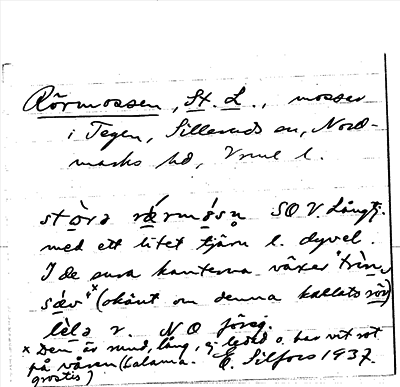 Rörmossen, St. L., mossar
i Tegen, Silleruds sn, Nord-
marks hd, Vrml l.
stòra rǽrmósn SO V. Långtj.
med ett litet tjärn l. dyvel.
I de sura kanterna växer "trìn
sæv"x (okänt om denna kallats rör)
lìla r. N O föreg.
x Den är rund, lång, ej ledad o. har vit rot
på våren (Calama-
grostis) E. Silfors 1937.